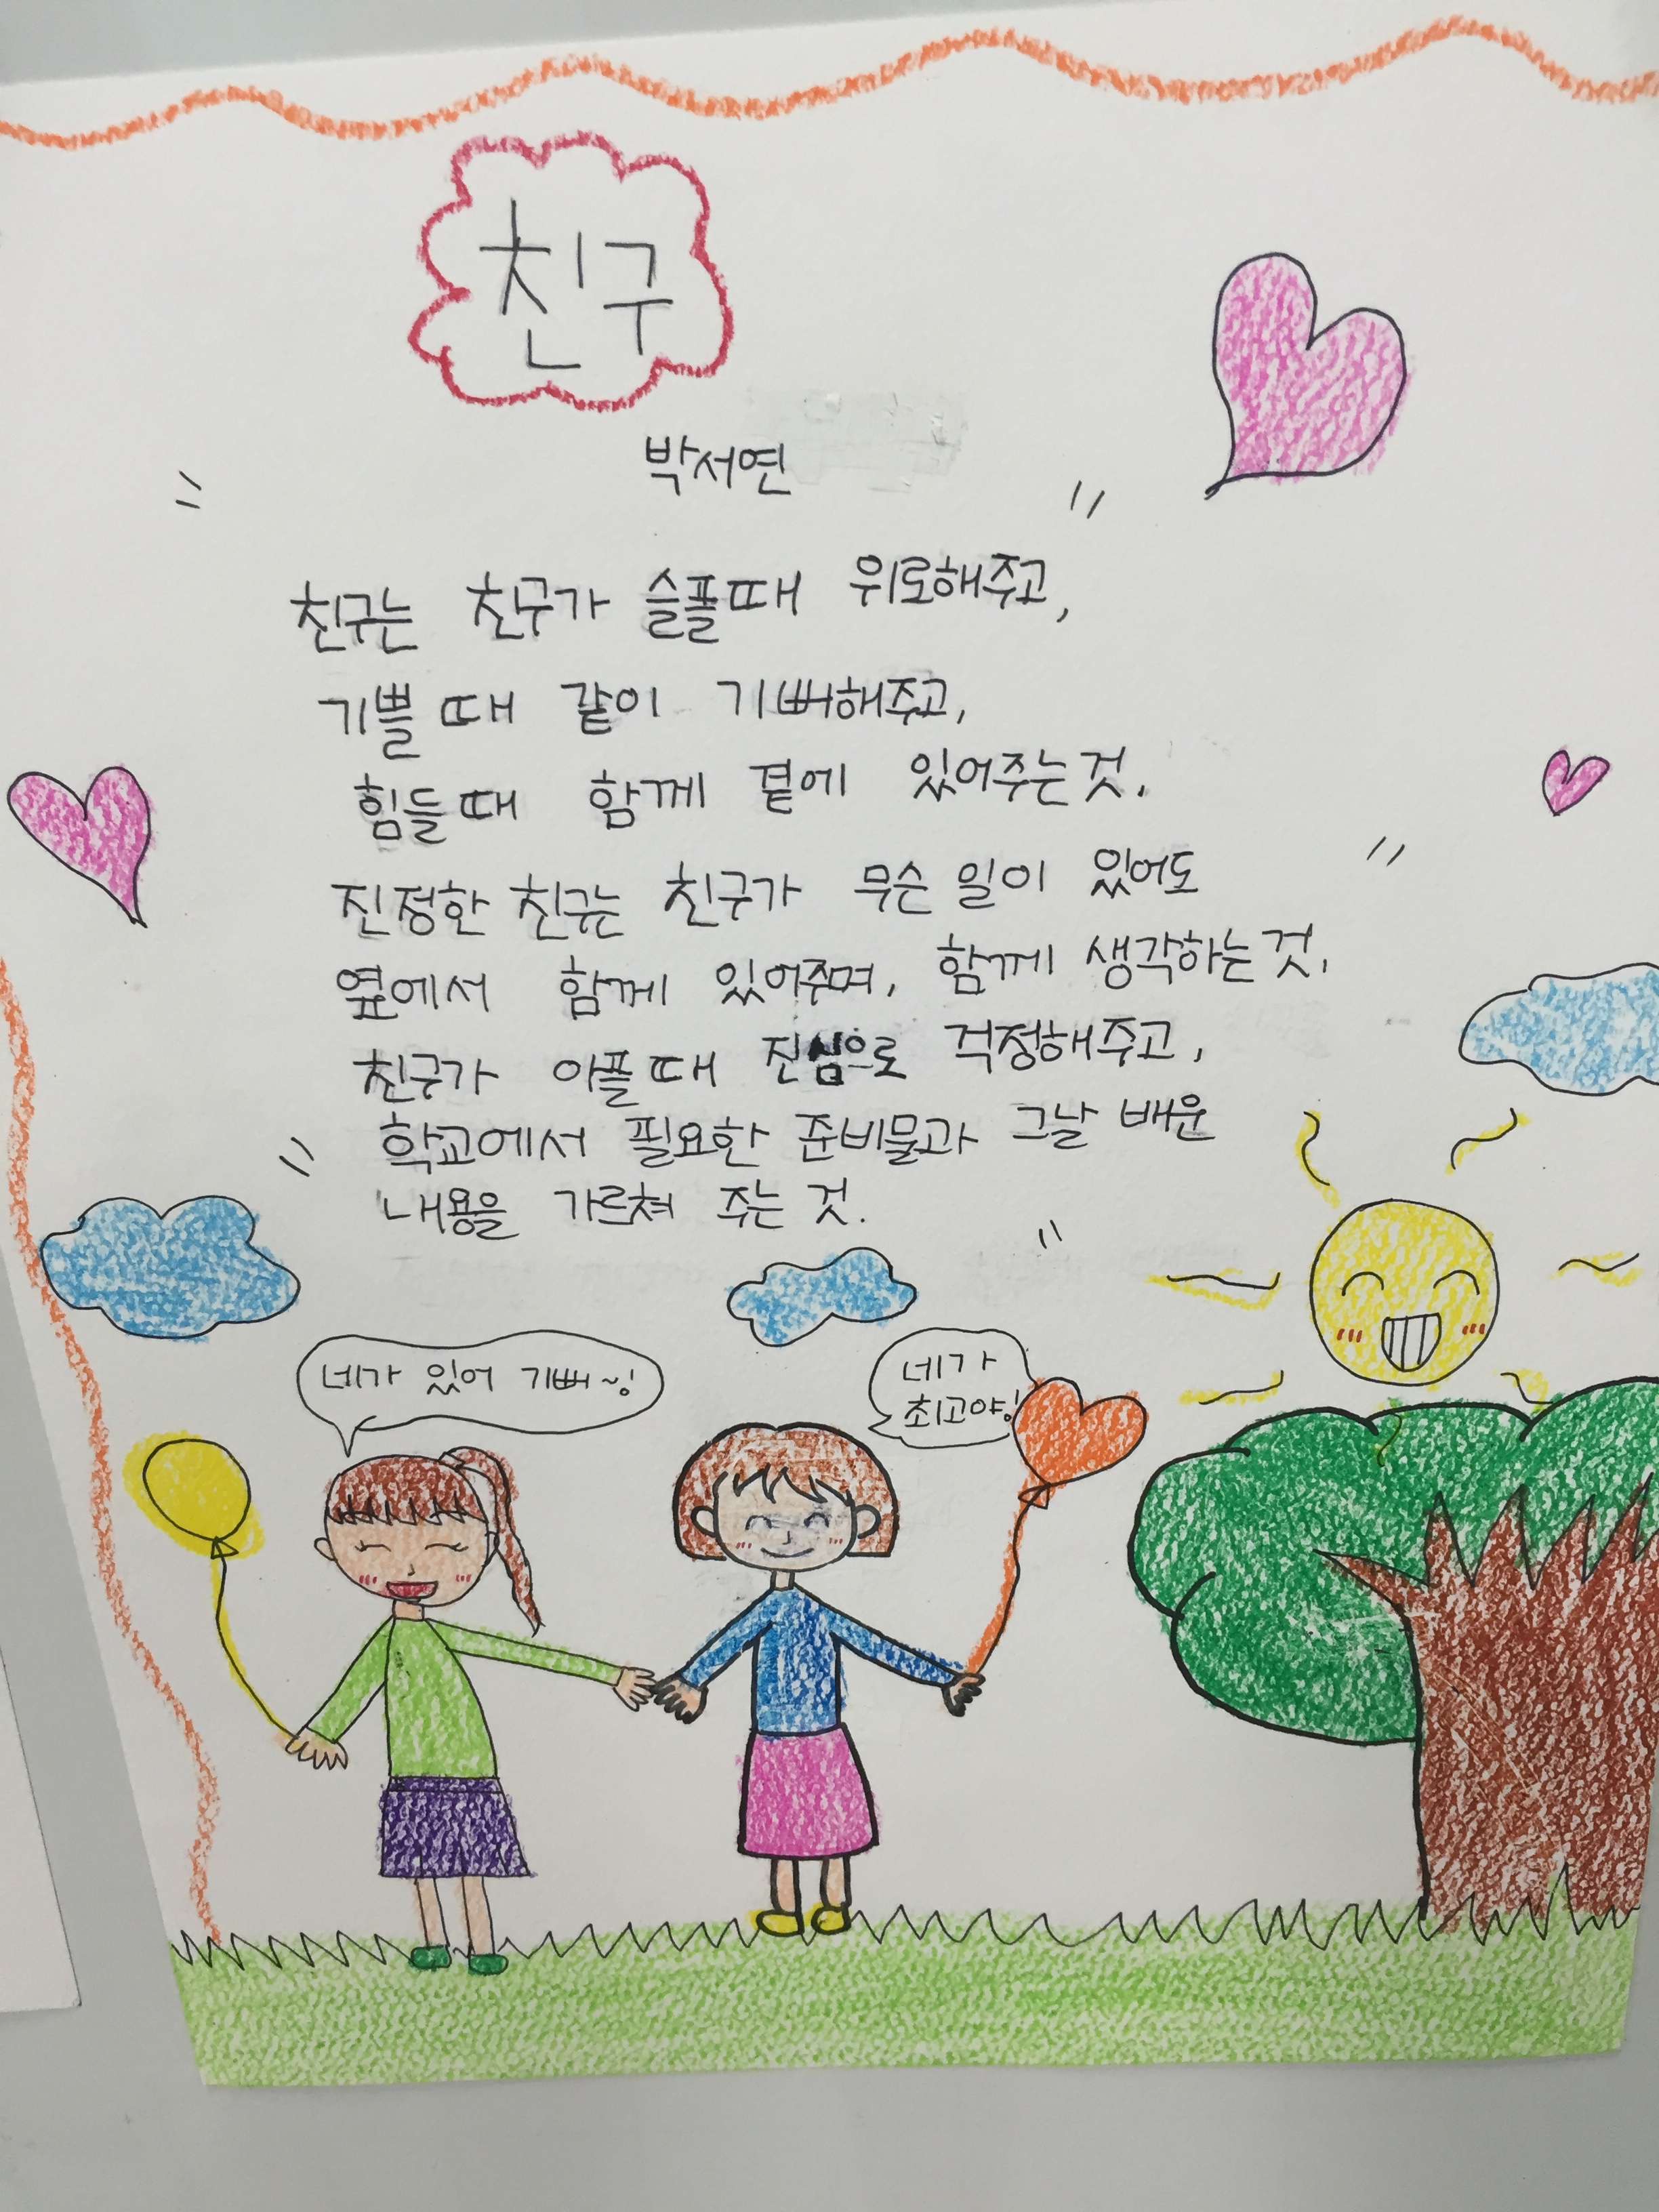 친구
박서연
친구는 친구가 슬플때 위로해주고,
기쁠 때 같이 기뻐해주고,
힘들때 함께 곁에 있어주는것.
진정한 친구는 친구가 무슨 일이 있어도
옆에서 함께 있어주며, 함께 생각하는것.
친구가 아플때 진심으로 걱정해주고,
학교에서 필요한 준비물과 그날 배운
내용을 가르쳐 주는 것.
네가 있어 기뻐~!
네가
최고야!